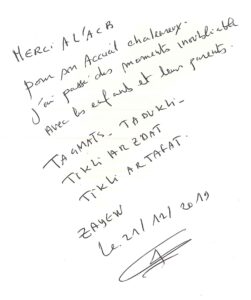 Merci A l'ACB
pour son Accueil chaleureux.
j'ai passé des moments inoubliable
Avec les enfants et leurs parents.
TAGMATS - TADUKLI -
TIKLI ARZDAT
TIKLI ARTAFAT.
ZAYEN
Le 21/12/2019